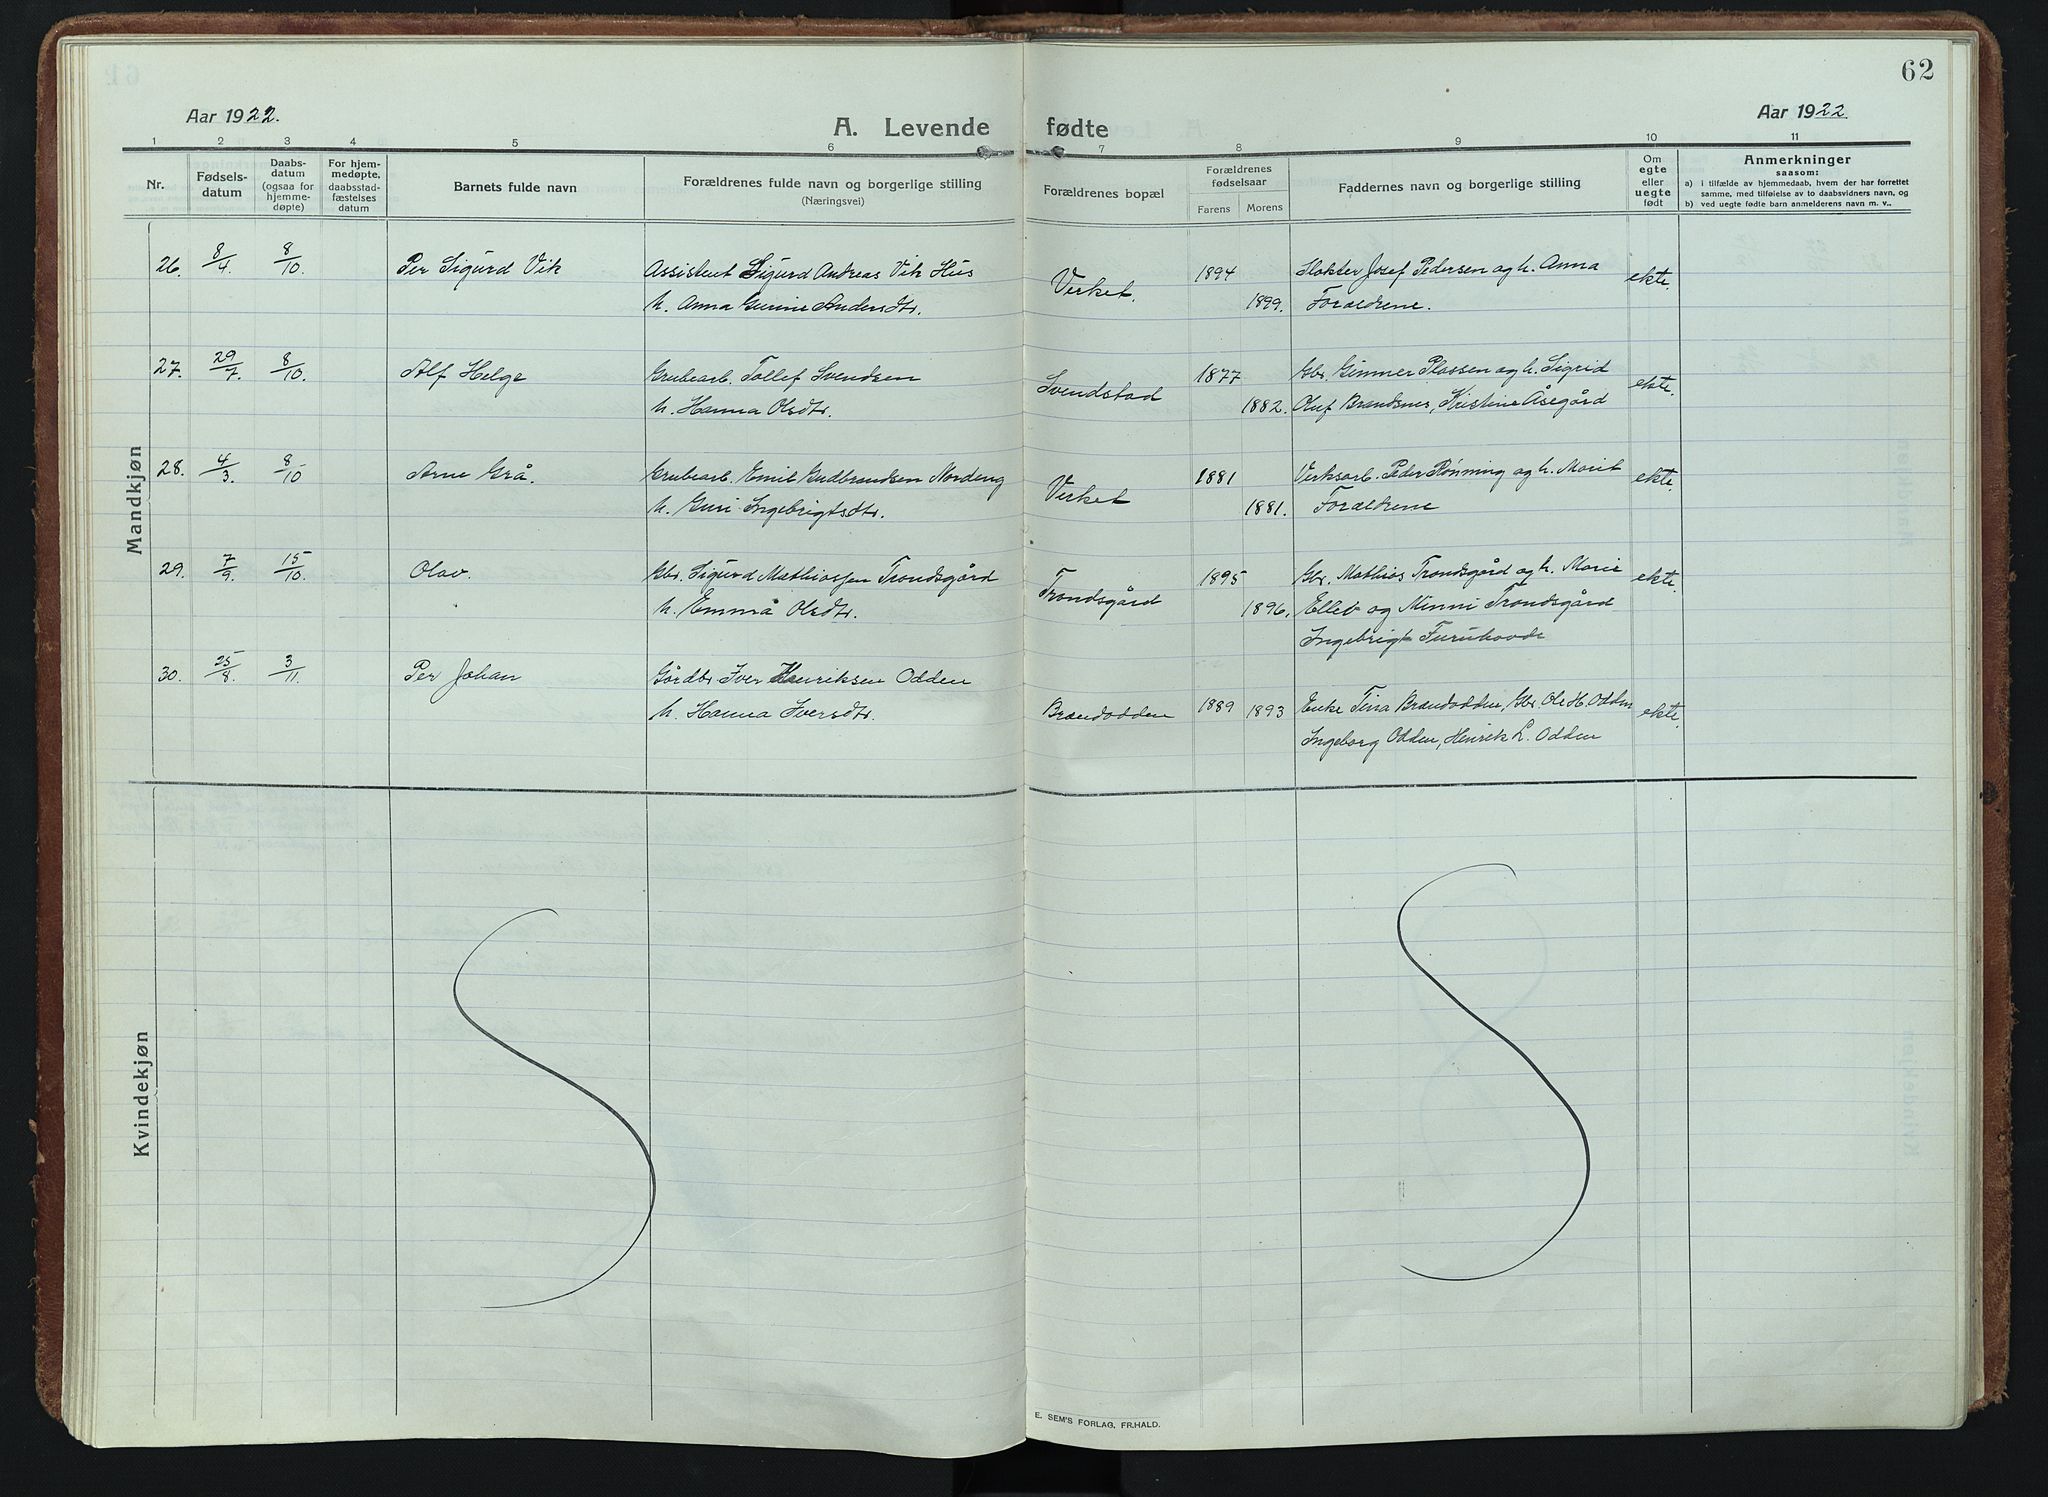 62
Aar 1922.
Aar 1922.
A. Levende fødte
1 2 3 4 5 6 7 8 9 10 11
Nr.
Fødsels-
datum
Daabs-
datum
(ogsaa for
hjemme-
døpte)
For hjem-
medøpte,
daabsstad-
fæstelses
datum
Barnets fulde navn
Forældrenes fulde navn og borgerlige stilling
(Næringsvei)
Forældrenes bopæl
Forældrenes
fødselsaar
Farens Morens
Faddernes navn og borgerlige stilling
Om
egte
eller
uegte
født
Anmerkninger
saasom:
a) i tilfælde av hjemmedaab, hvem der har forrettet
samme, med tilføielse av to daabsvidners navn, og
b) ved uegte fødte barn anmelderens navn m. v..
Mandkjøn
26. 8/4. 8/10. Per Sigurd Vik Assistent Sigurd Andreas Vik Hus Verket. 1894 Slakter Josef Pedersen og h. Anna ekte.
h. Anna Gurine Andersdtr. 1899. Forældrene.
27. 29/7. 8/10. Alf Helge Grubearb. Tollef Svendsen Svendstad 1877 Gbr. Gimmer Plassen og h. Sigrid ekte.
h. Hanna Olsdtr. 1882. Oluf Brandsnes, Kristine Åsegård
28. 4/3. 8/10 Arne Grå. Grubearb. Emil Gudbrandsen Nordeng Verket 1881 Verksarb. Peder Rønning og h. Marit ekte.
h. Guri Ingebrigtsdtr. 1881. Forældrene
29. 7/9. 15/10. Olav. Gbr. Sigurd Mathiassen Trondsgård Trondsgård 1895 Gbr. Mathias Trondsgård og h. Marie ekte.
h. Emma Olsdtr. 1896. Ellev og Minni Trondsgård
Ingebrigt Furuhovde
30. 25/8. 3/11. Per Johan Gårdbr. Iver Henriksen Odden Brændodden 1889 1893 Enke Tina Brændodden, Gbr. Ole H. Odden ekte.
h. Hanna Iversdtr. Ingeborg Odden, Henrik L. Odden
Kvindekjøn
E. SEM'S FORLAG, FR.HALD.